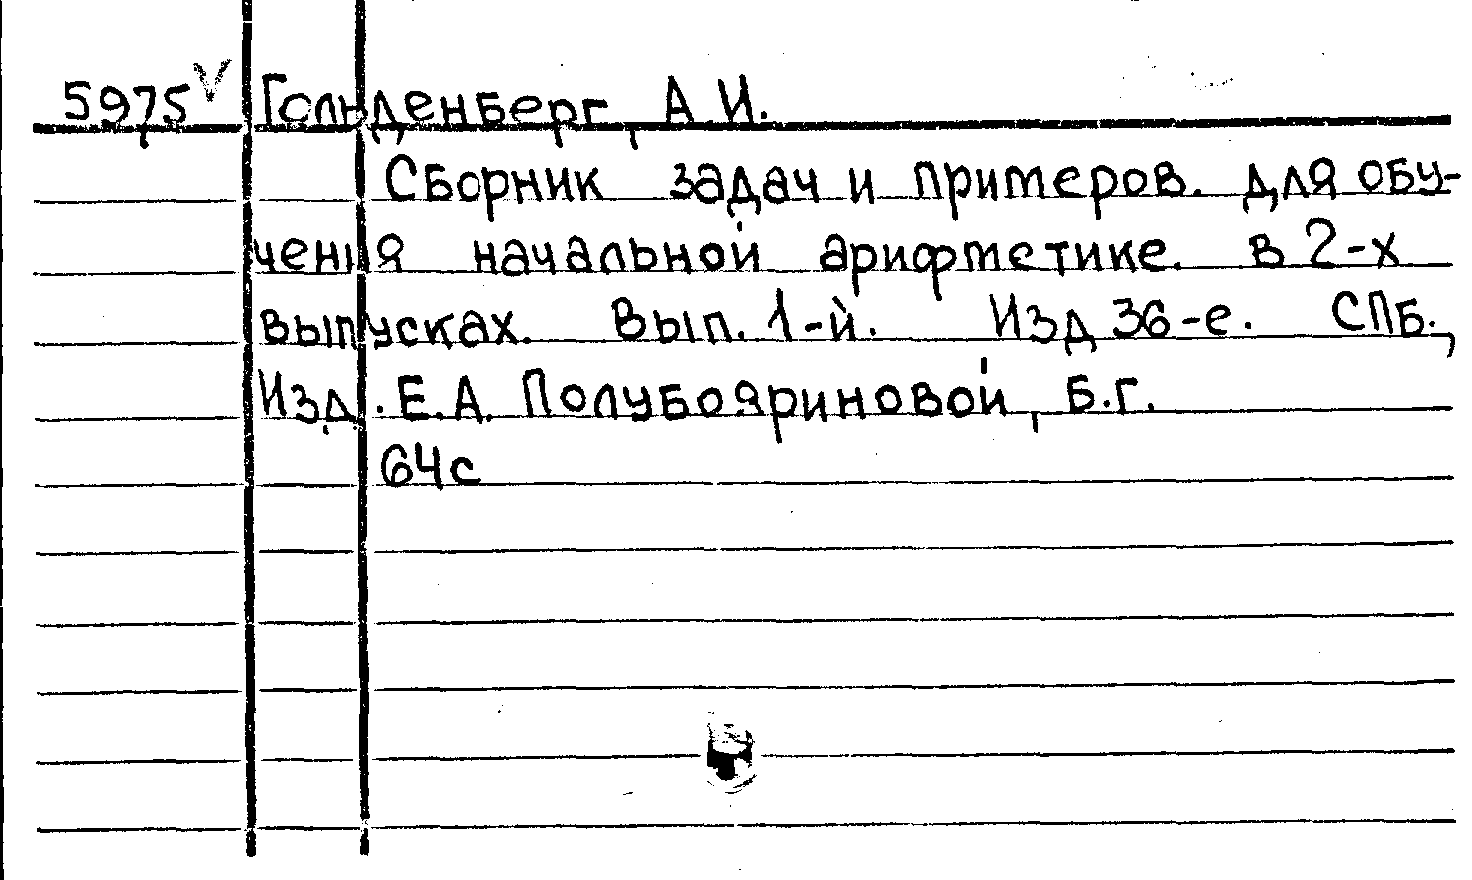 5975 V Гольденберг, А.И.
Сборник задач и примеров. Для обу-
чения начальной арифметике. В 2-х
выпусках. Вып. 1-й. Изд 36-е. СПб.,
Изд. Е.А. Полубояриновой, Б.г.
64с